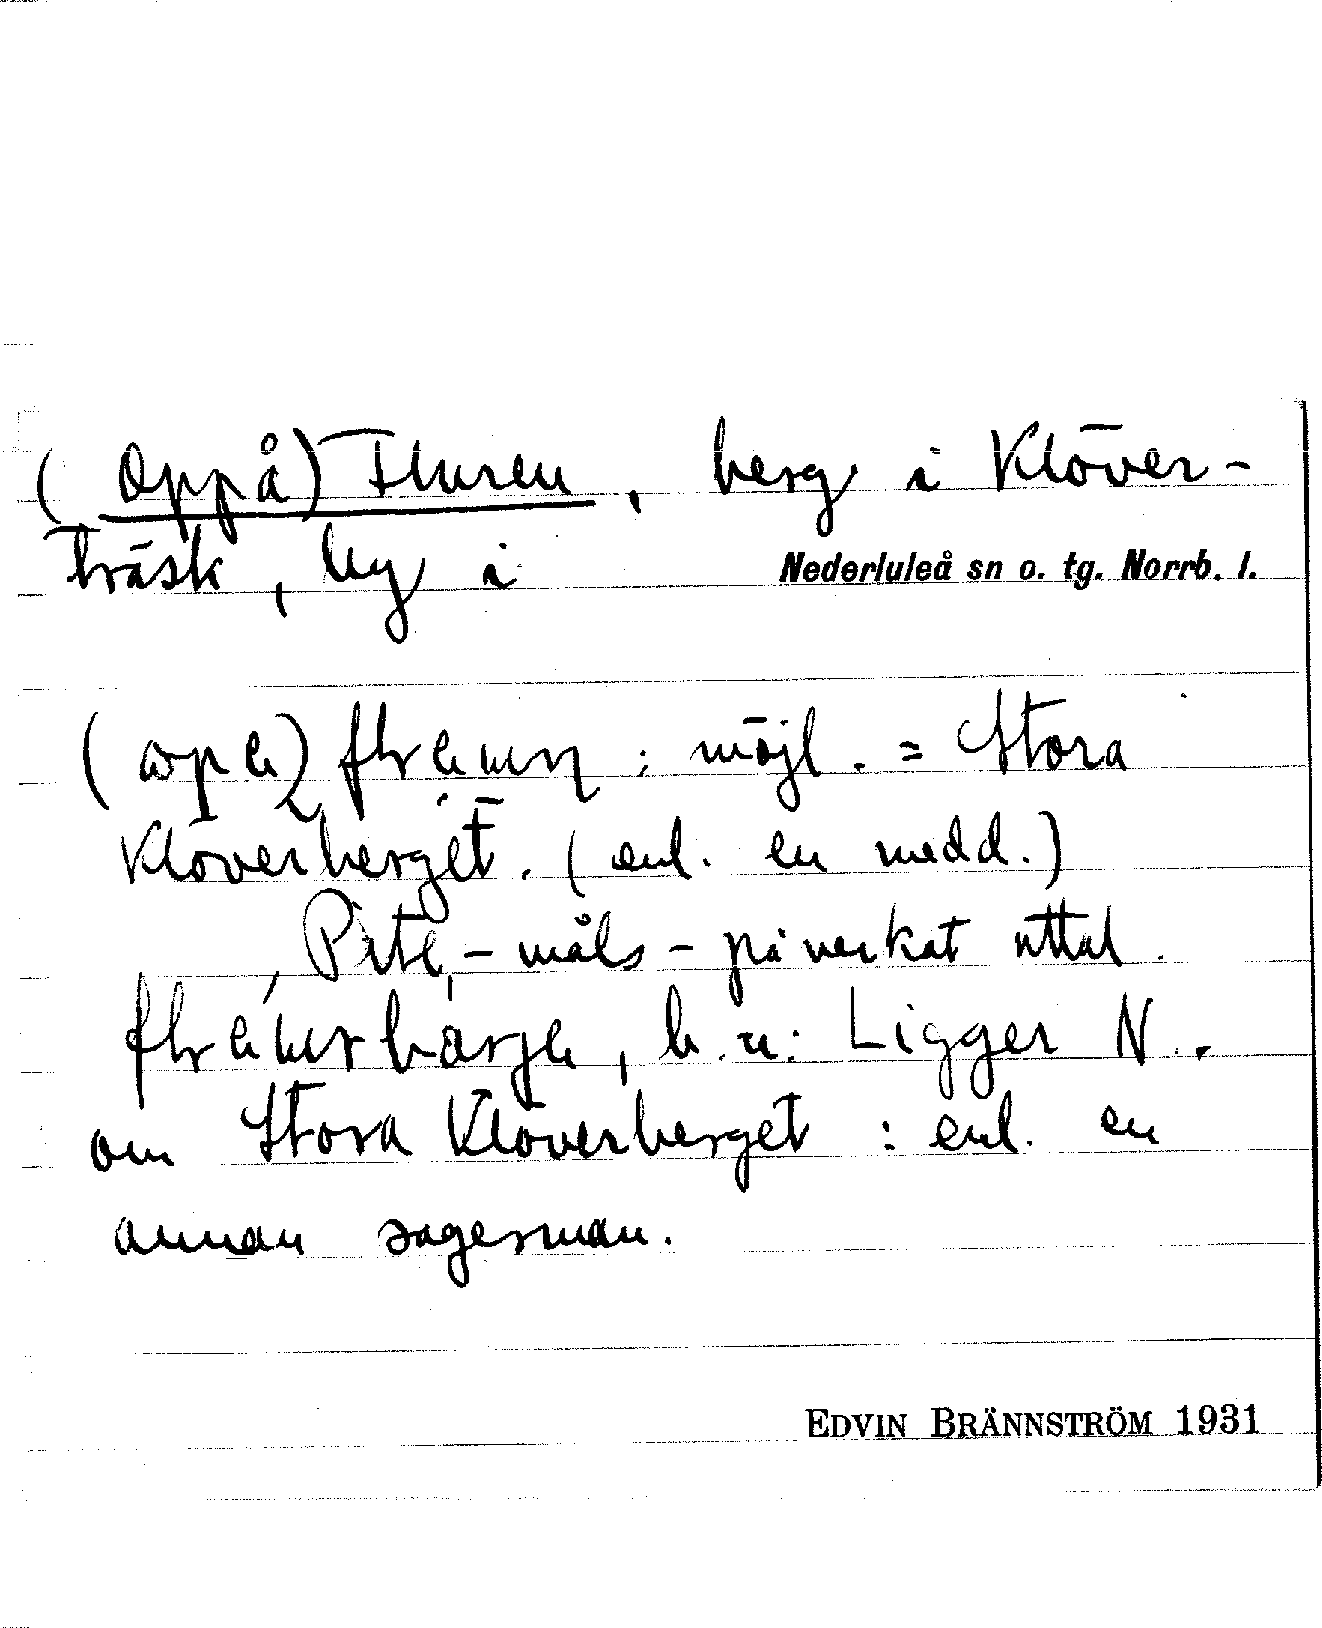 (Oppå) Fluren, berg i Klöver-
träsk, by i Nederluleå sn o. tg. Norrb. l.
möjl. = Stora
Klöverberget. (enl. en medd.)
Pite-måls-påverkat uttal.
b. n: Ligger N.
om Stora Klöverberget : enl. en
annan sagesman.
EDVIN BRÄNNSTRÖM 1931